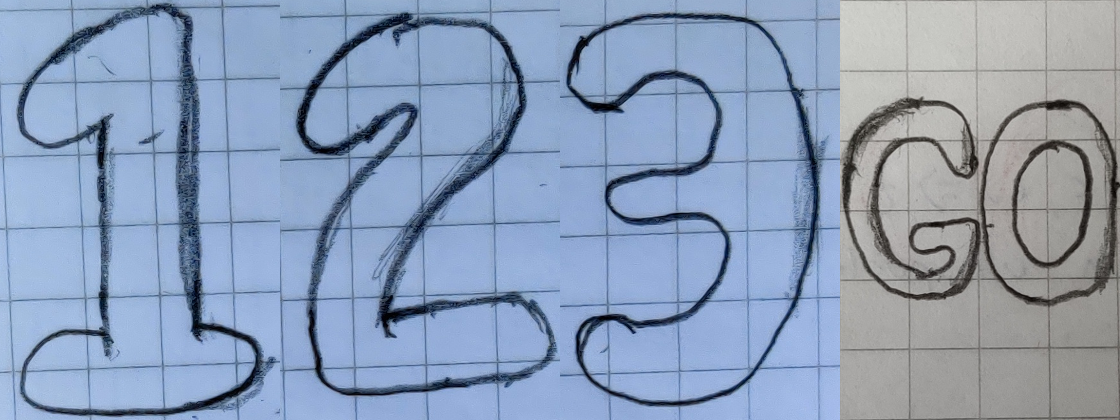 123 GO